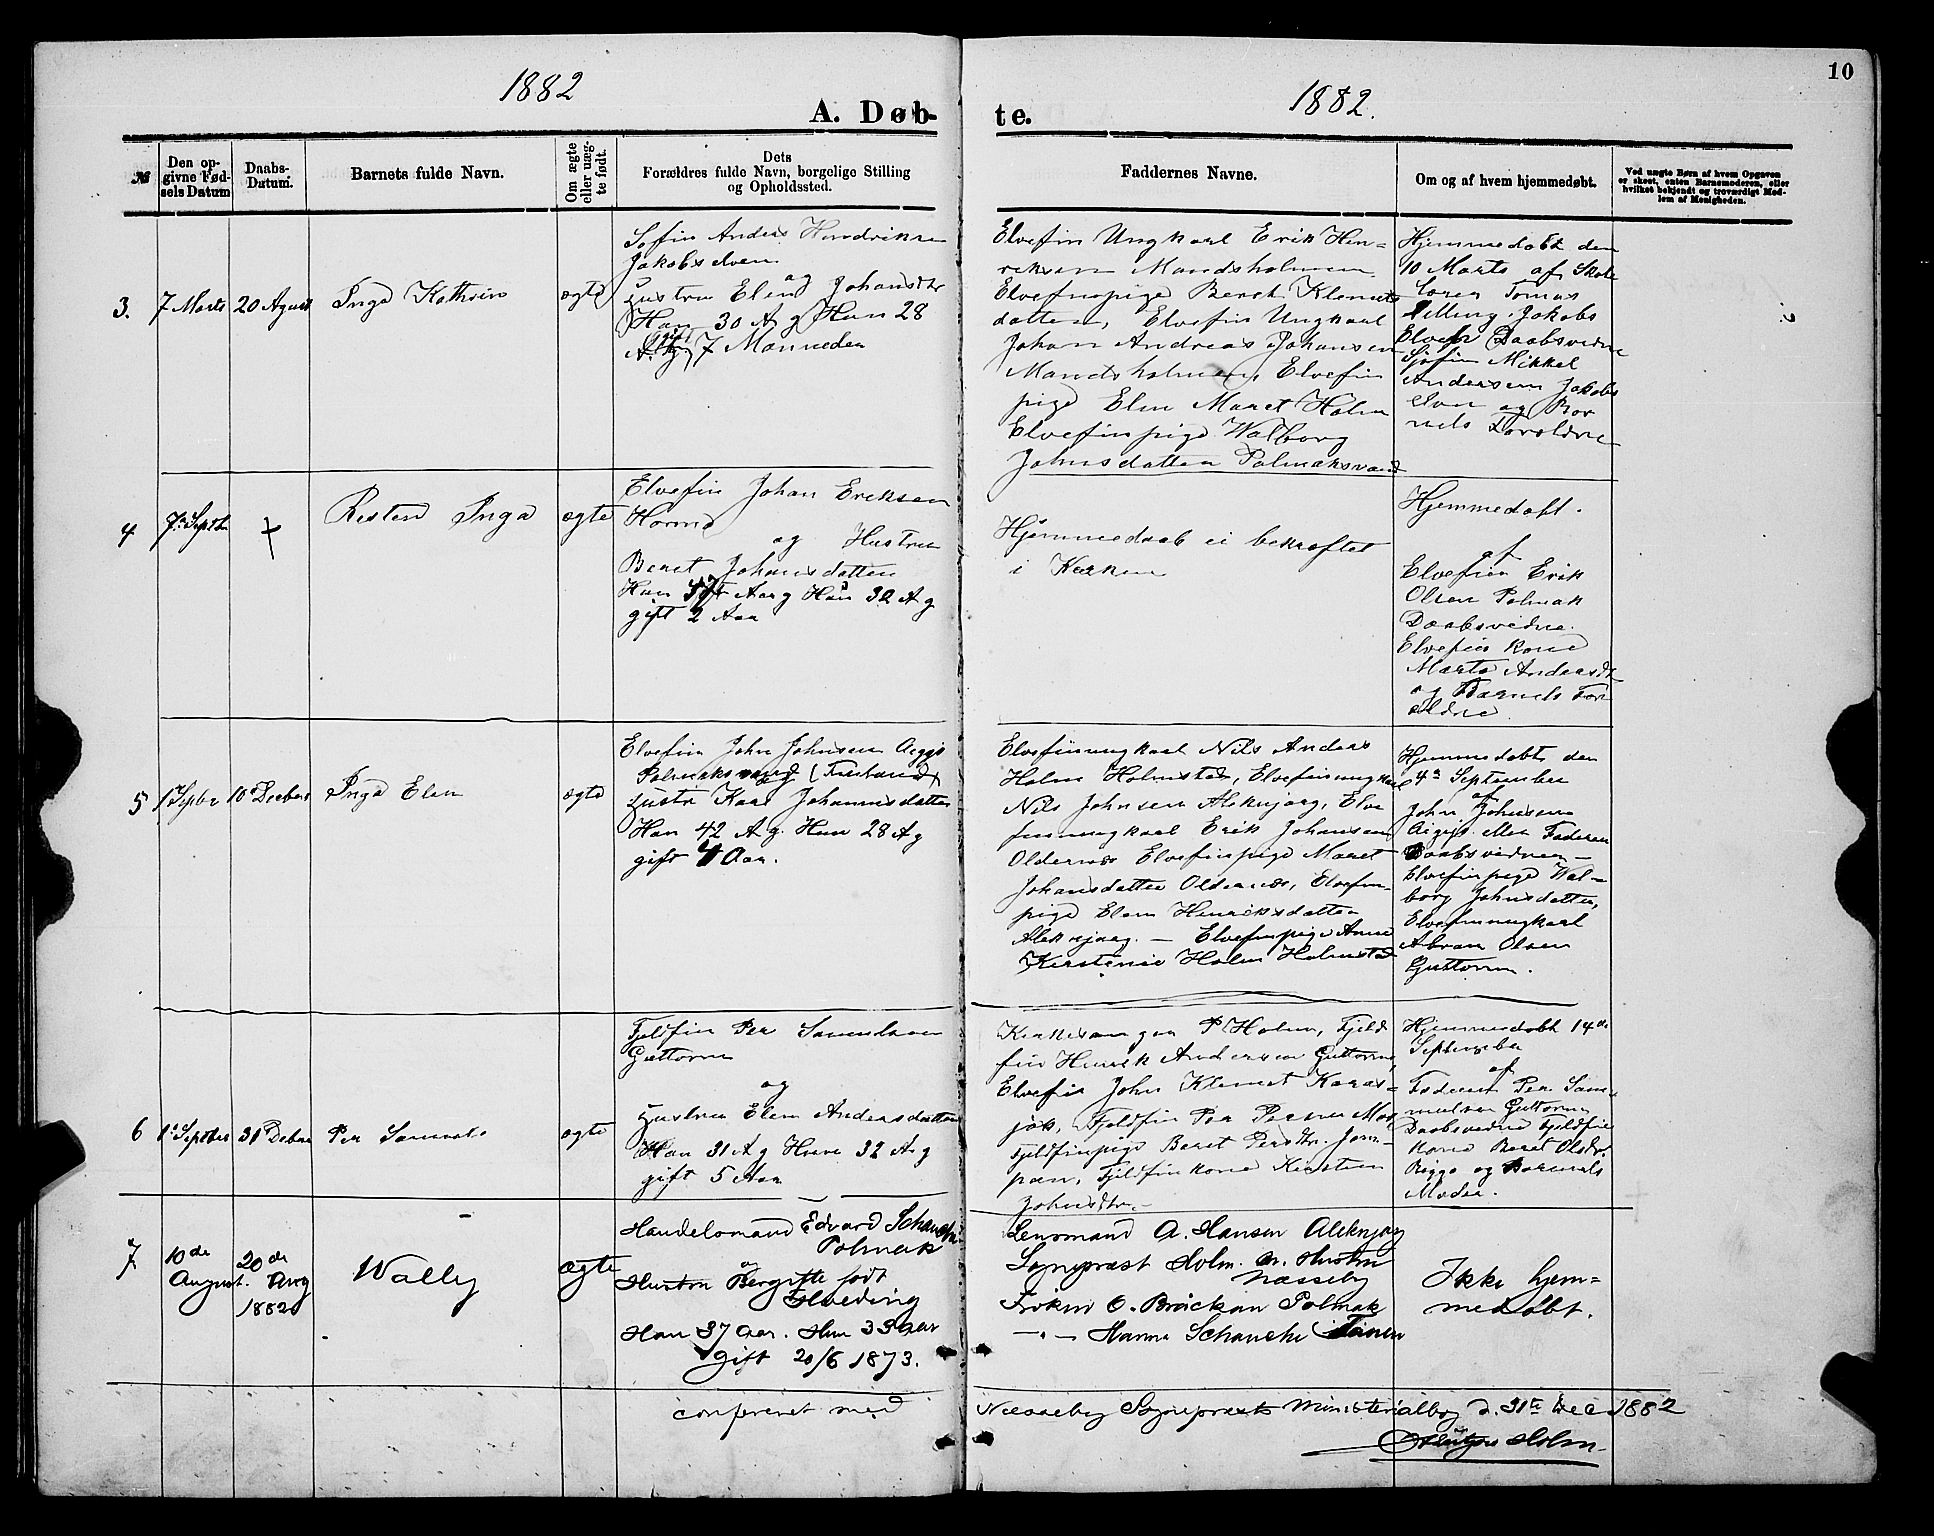 1882
1882.
10
A. Døb-
te.
№
Den op-
givne Fød-
sels Datum
Daabs-
Datum.
Barnets fulde Navn.
Om ægte
eller uæg-
te født.
Dets
Forældres fulde Navn, borgelige Stilling
og Opholdssted.
Faddernes Navne.
Om og af hvem hjemmedøbt.
Ved uægte Børn af hvem Opgaven
er skeet, enten Barnemoderen, eller
hvilket bekjendt og troværdigt Med-
lem af Menigheden.
3.
7 Marts
20 August
Inga Kathrin
ægte
Søfin Anders Hendriksen
Jakobselven
og
Hustru Elen Johansdtr
Han 30 A g Hun 28
A. g gift 7 Manneder
Elvefin Ungkarl Erik Hen-
riksen Mandsholmen
Elvefinpige Beret Klemets
datter, Elvefin Ungkarl
Johan Andreas Johansen
Mandsholmen, Elvefin
pige Elen Maret Holm
Elvefinpige Walborg
Johnsdatter Polmaksvand
Hjemmedøbt den
10 Marts af Skole
lærer Tomas
Jakobs
Elven Daabsvidne
Sjøfin Mikkel
Andersen Jakobs
elven og Bar
nets Forældre
4
7de Septbr
+
Risten Inga
ægte
Elvefin Johan Eriksen
Horma
og Hustru
Beret Johansdatter
Han 37 Aar g Hun 32 A g
gift 2 Aar
Hjemmedaab ei bekræftet
i Kirken
Hjemmedøbt.
af
Elvefin Erik
Olsen Polmak
Daabsvidne.
Elvefin Kone
Marta Andersdt
og Barnets For
ældre
5
1ste Septbr
10de Decbr
Inga Elen
ægte
Elvefin John Johnsen Aigjs
Polmaksvand
Hustr Kari Johannisdatter
Han 42 A g. Hun 28 A g
gift 4 Aar.
Elvefinungkarl Nils Anders
Holm Holmstad, Elvefinungkarl
Nils Johnsen Aleknjarg, Elve
finungkarl Erik Johansen
Oldernæs Elvefinpige Maret
Johansdatter Oldernæs, Elvefin
pige Elen Henriksdatter
Aleknjarg. — Elvefinpige Anne
Kirstenie Holm Holmstad
Hjemmedøbt den
4de September
af
John Johnsen
Aigjs eller Faderen
Daabsvidner —
Elvefinpige Wal-
borg Johnsdatter,
Elvefinungkarl
Abram Olsen
Guttorm.
6
1ste Septbr
31te Decbr
Per Samuel
ægte
Fjeldfin Per Samuelsen
Guttorm
og
Hustru Elen Andersdatter
Han 31 A g Hun 32 A g
gift 5 Aar
Kirkesanger P Holm, Fjeld
fin Henrik Andersen Guttorm,
Elvefin John Klemet Karas-
jok, Fjeldfin Per Persen
Fjeldfinpige Beret Persdtr.
Fjeldfin kone Kirsten
Johnsdtr. —
Hjemmedøbt 14de
September
af
Faderen Per Sam-
uelsen Guttorm
Daabsvidne Fjeldfin
kone Beret Olsdtr.
og Barnets
Moder.
7.
10de
August.
20de
Aug
1882
Wally
ægte
Handelsmand Edvard Schanche
Polmak
og
Hustru Bergitte født
Hveding
Han 37 Aar. Hun 33 Aar
gift 20/6 1873.
Lensmand A. Hansen Aleknjarg
Sogneprest Holm. m. Hustru
Næsseby
Frøken O. Polmak
— " — Hanna Schanche Tanen
Ikke hjem-
medøbt.
conferent med
Næsseby Sogneprests Ministerialbog d. 31te Dec 1882
Holm.